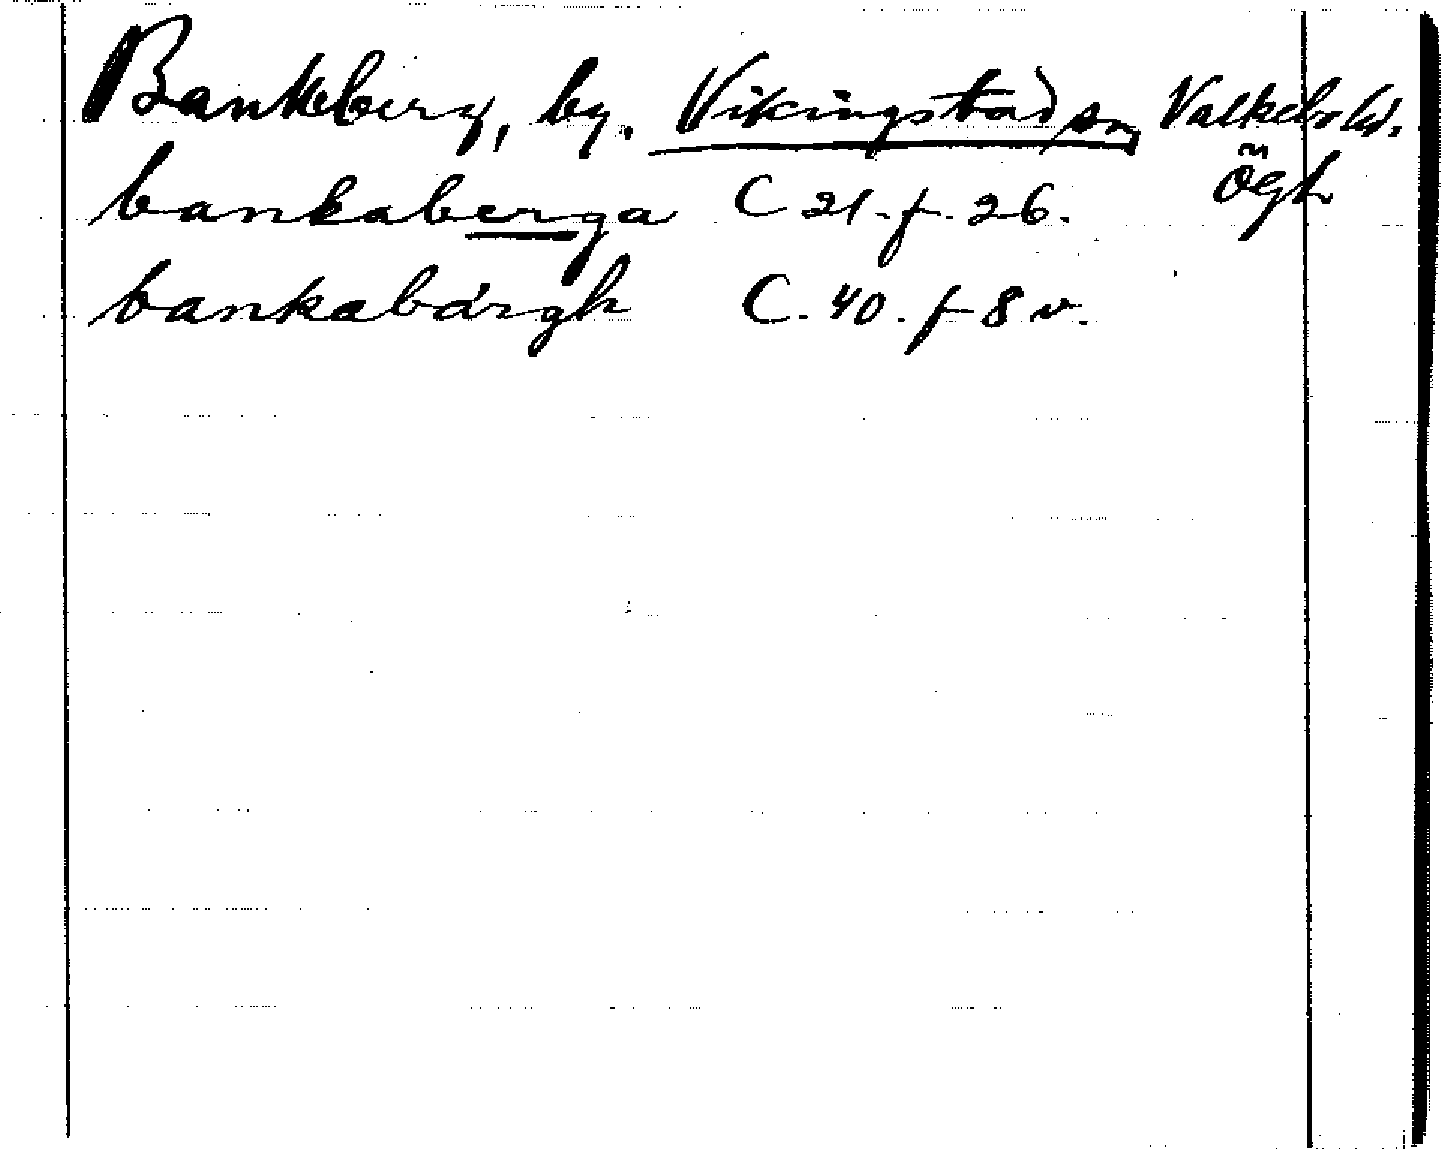 Bankeberg, by. Vikingstad sn, Valkebo hd.
Ögtl
bankaberga C 21. f. 26.
bankabärgh C. 40. f 8 v.